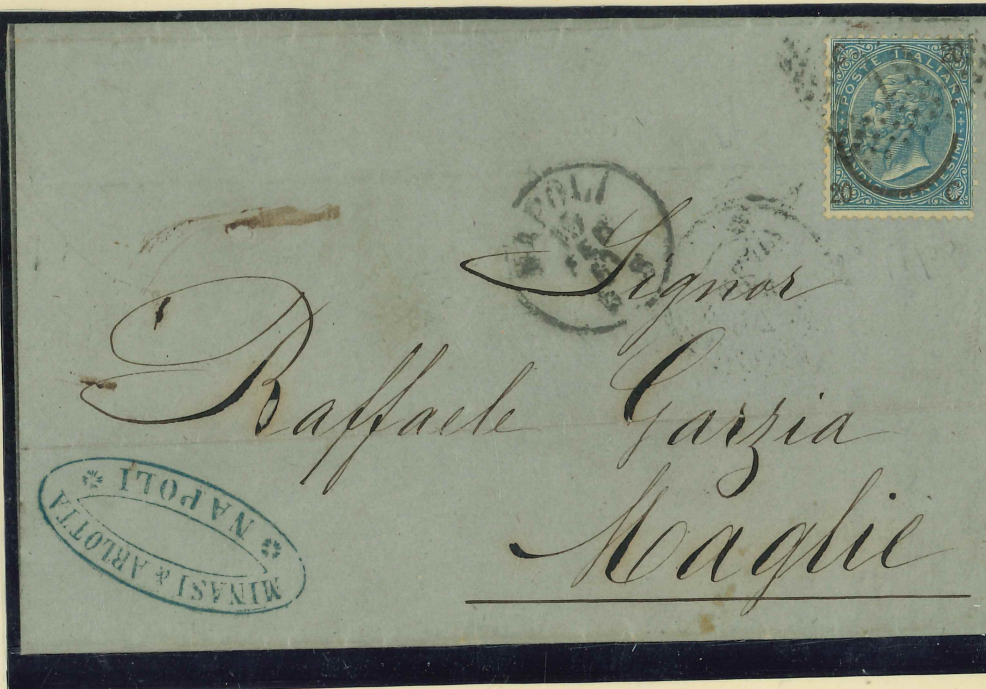 POSTE ITALIANE
20 C
CENTESIMI
NAPOLI
Signor
Raffaele Garzia
Maglie
MINASI & ARLOTTA
NAPOLI